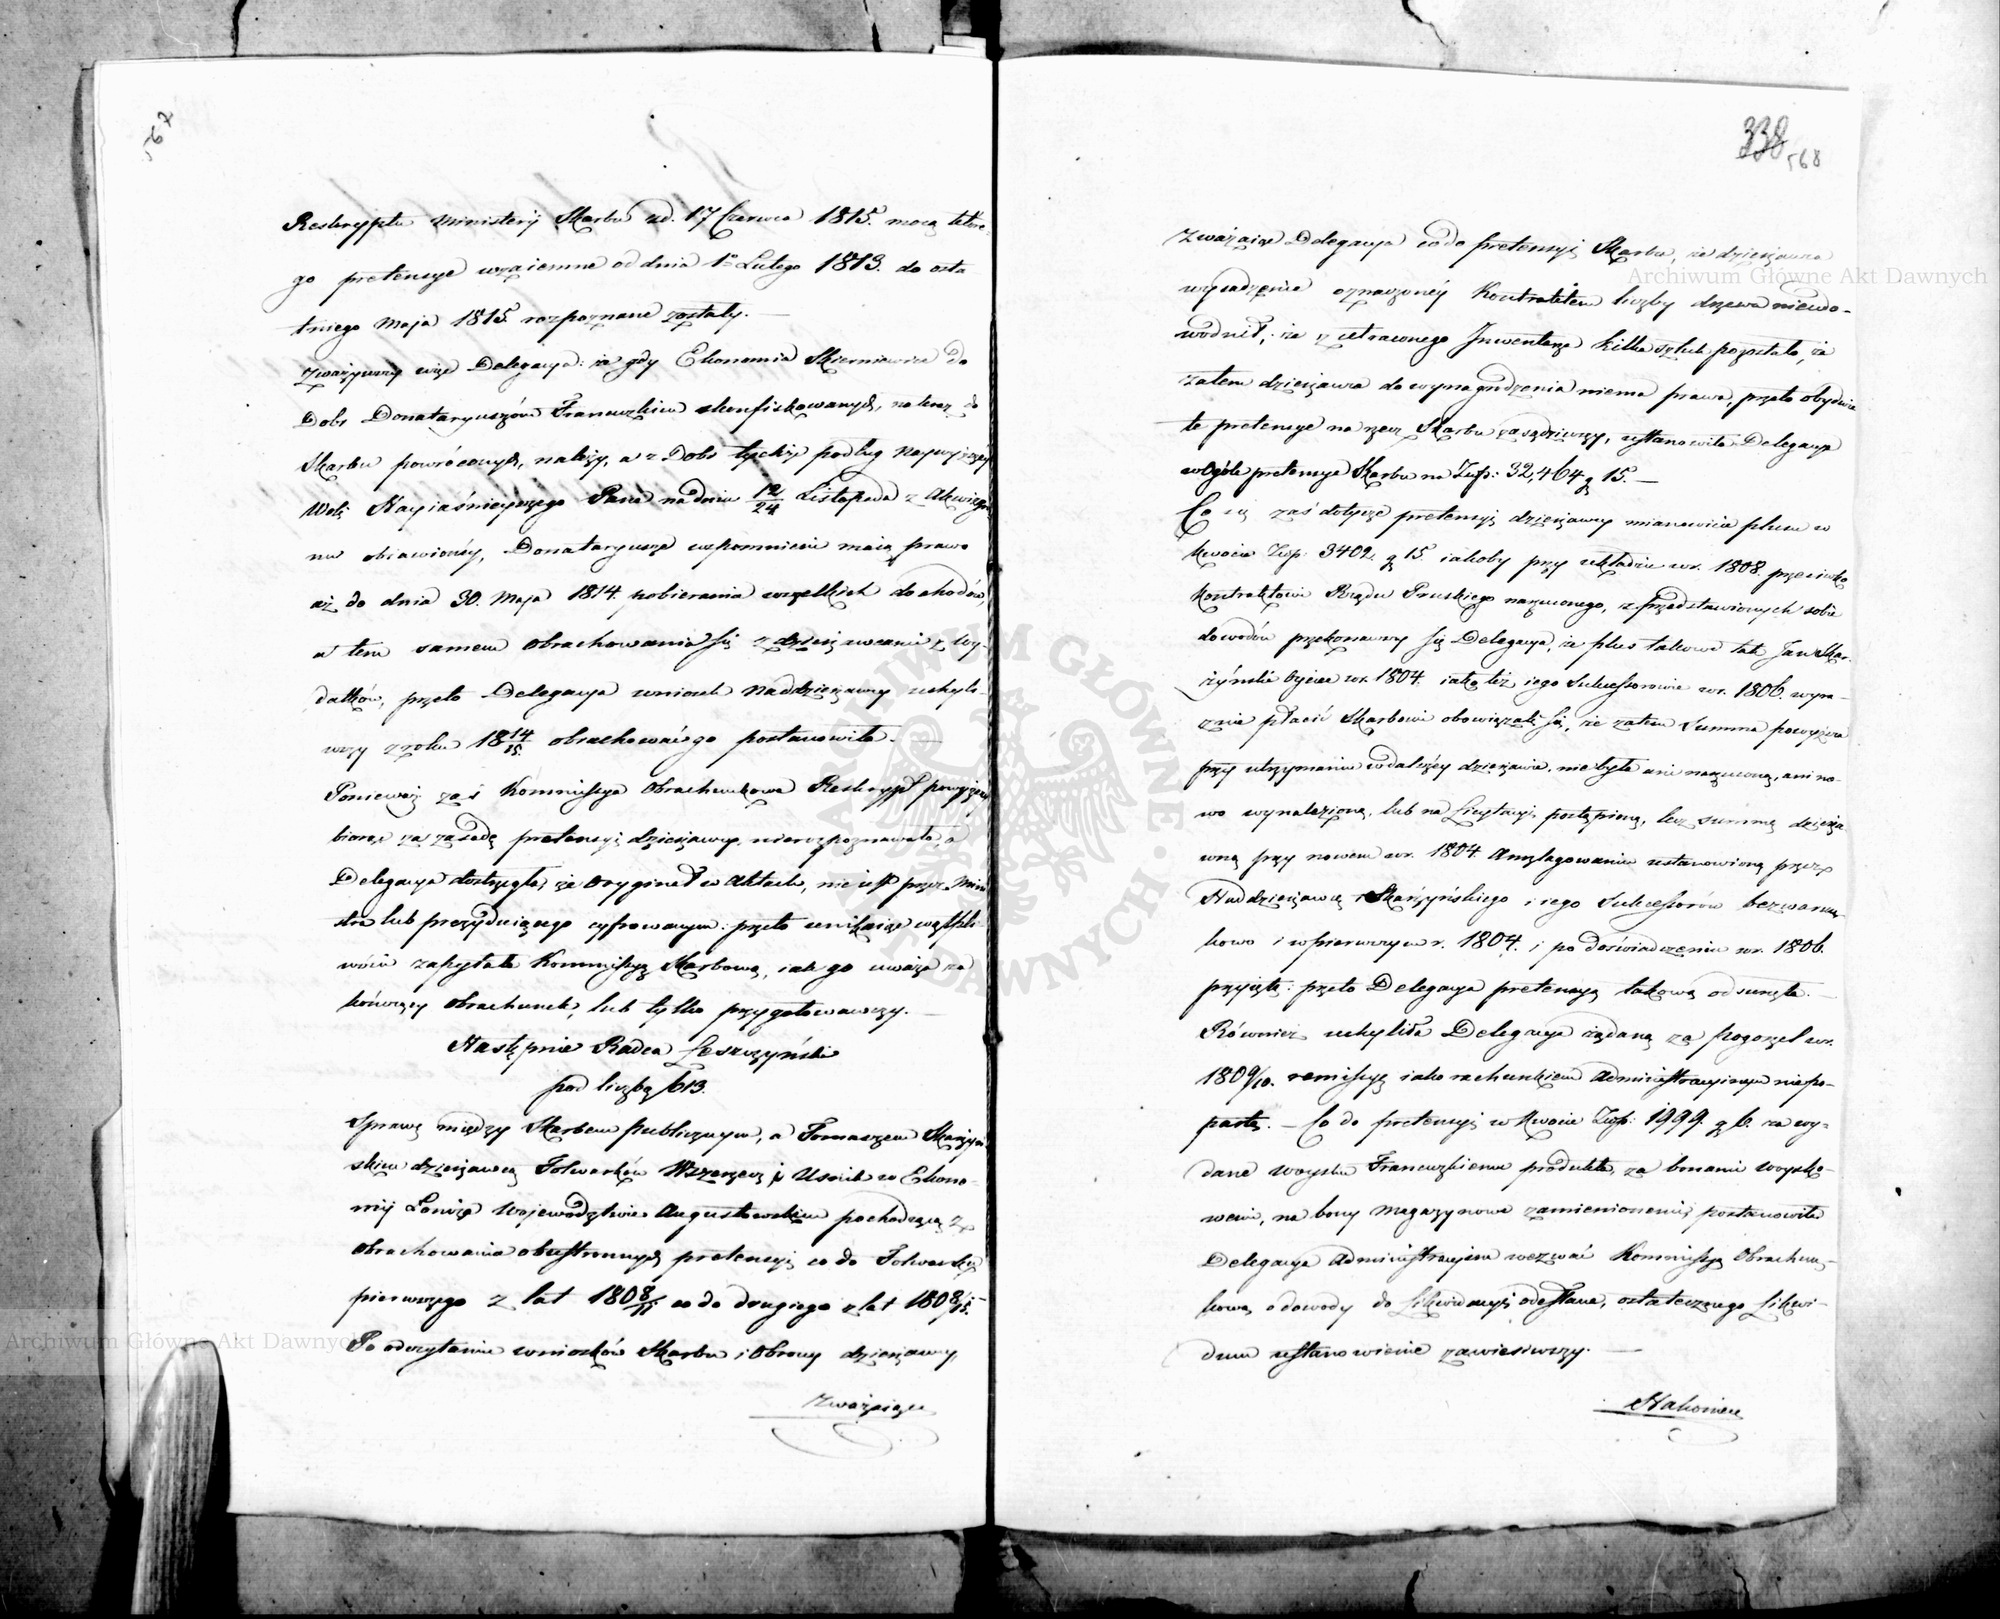 567
Reskryptu Ministerij Skarbu z d. 17 Czerwca 1815. mocą które-
go pretensye wzaiemne od dnia 1º Lutego 1813. do osta
tniego Maja 1815 rozpoznane zostały. —
Zważywszy więc Delegacya: że gdy Ekonomia Skierniewice do
Dobr Donataryuszów Francuzkich skonfiskowanych, na teraz do
Skarbu powróconych, należy, a z Dobr tychże podług Naywyższey
Woli Nayiaśnieyszego Pana na dniu 12/24 Listopada z Akwizgra
nu obiawioney, Donataryusze wspomnieni maią prawo
aż do dnia 30. Maja 1814 pobierania wszelkich dochodów,
a tem samem obrachowania się z dzierżawcami z Wy-
datków, przeto Delegacya wniosek Naddzierżawcy uchyli-
wszy z roku 18 14/15. obrachować go postanowiła. —
Ponieważ zaś Kommissya Obrachunkowa Reskrypt powyższy
biorąc za zasadę pretensyi dzierżawcy nierozpoznawała, a
Delegacya dostrzegła, że Oryginał w Aktach, nie iest przez Mini
stra lub prezyduiącego cyfrowanym: przeto unikaiąc wątpli-
wości zapytała Kommissyą Skarbową, iak go uważa za
kończący Obrachunek, lub tylko przygotowawczy. —
Następnie Radca Leszczyński
pod liczbą 613.
Sprawę między Skarbem publicznym, a Tomaszem Skarżyń
skim dzierżawcą Folwarków Wszerzecz i Usnik w Ekono-
mij Łomża Województwie Augustowskim pochodzącą z
Obrachowania obustronnych pretensyi co do Folwarku
pierwszego z lat 180 8/11 co do drugiego z lat 180 8/15. —
Po odczytaniu wniosków Skarbu i Obrony dzierżawcy,
Zważaiąc
338 568
Zważaiąc Delegacya co do pretensyi Skarbu, że dzierżawca
wysadzenie oznaczoney Kontraktem liczby drzewa nieudo-
wodnił; że z utraconego Inwentarza kilka sztuk pozostało, że
zatem dzierżawca do wynagrodzenia niema prawa, przeto obydwie
te pretensye na rzecz Skarbu zasądziwszy, ustanowiła Delegacya
wogóle pretensye Skarbu na Złp: 32,464 g 15. —
Co się zaś dotycze pretensyi dzierżawcy mianowicie plusu w
kwocie Złp: 3402. g 15. iakoby przy układzie w r. 1808. przeciwko
kontraktowi Rządu Pruskiego narzuconego, z przedstawionych sobie
dowodów przekonawszy się Delegacya, że plus takowe tak Jan Skar-
żyński ieszcze w r. 1804. iako też iego Sukcessorowie w r. 1806. wyra-
źnie płacić Skarbowi obowiązali się, że zatem Summa powyższa
przy utrzymaniu w dalszey dzierżawie, nie była ani narzuconą, ani no-
wo wynalezioną, lub na Licytacyi postąpioną, lecz summą dzierża
wną przy nowem w r. 1804. Anszlagowaniu ustanowioną przez
Naddzierżawcę Skarżyńskiego i iego Sukcessorów bezwarun-
kowo i w pierwszym r. 1804. i po doświadczeniu w r. 1806.
przyiętą: przeto Delegacya pretensyą takową odsunęła. —
Również uchyliła Delegacya żądaną za pogorzel w r.
1809/10. remissyą iako rachunkiem Administracyinym niepo-
partą. — Co do pretensyi w kwocie Złp: 1999. g 6. za wy-
dane woysku Francuzkiemu produkta, za bonami woysko-
wemi, na bony magazynowe zamienionemi, postanowiła
Delegacya Administracyinie wezwać Kommissyą Obrachun-
kową o dowody do Likwidacyi odesłane, ostatecznego Likwi-
dum ustanowienie zawiesiwszy. —
Nakoniec
Archiwum Główne Akt Dawnych
Archiwum Główne Akt Dawnych
ARCHIWUM GŁÓWNE AKT DAWNYCH